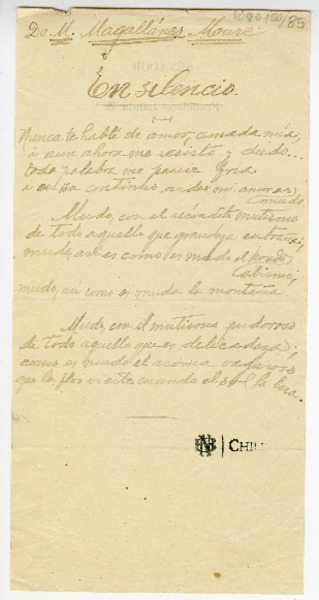 De M. Magallánes Moure.
En silencio.
Nunca te hablé de amor, amada mía,
i aun ahora me resisto y dudo...
toda palabra me parece fría
i en tu continuo ardor mi amor es
mudo.
Mudo, con el recóndito mutismo
de todo aquello que grandeza entraña;
mudo, así como es mudo el hondo
abismo,
mudo, así como es muda la montaña.
Mudo, con el mutismo pudoroso
de todo aquello que es delicadeza;
como es mudo el vagaroso
que la flor siente cuando el sol la besa.
CHIL